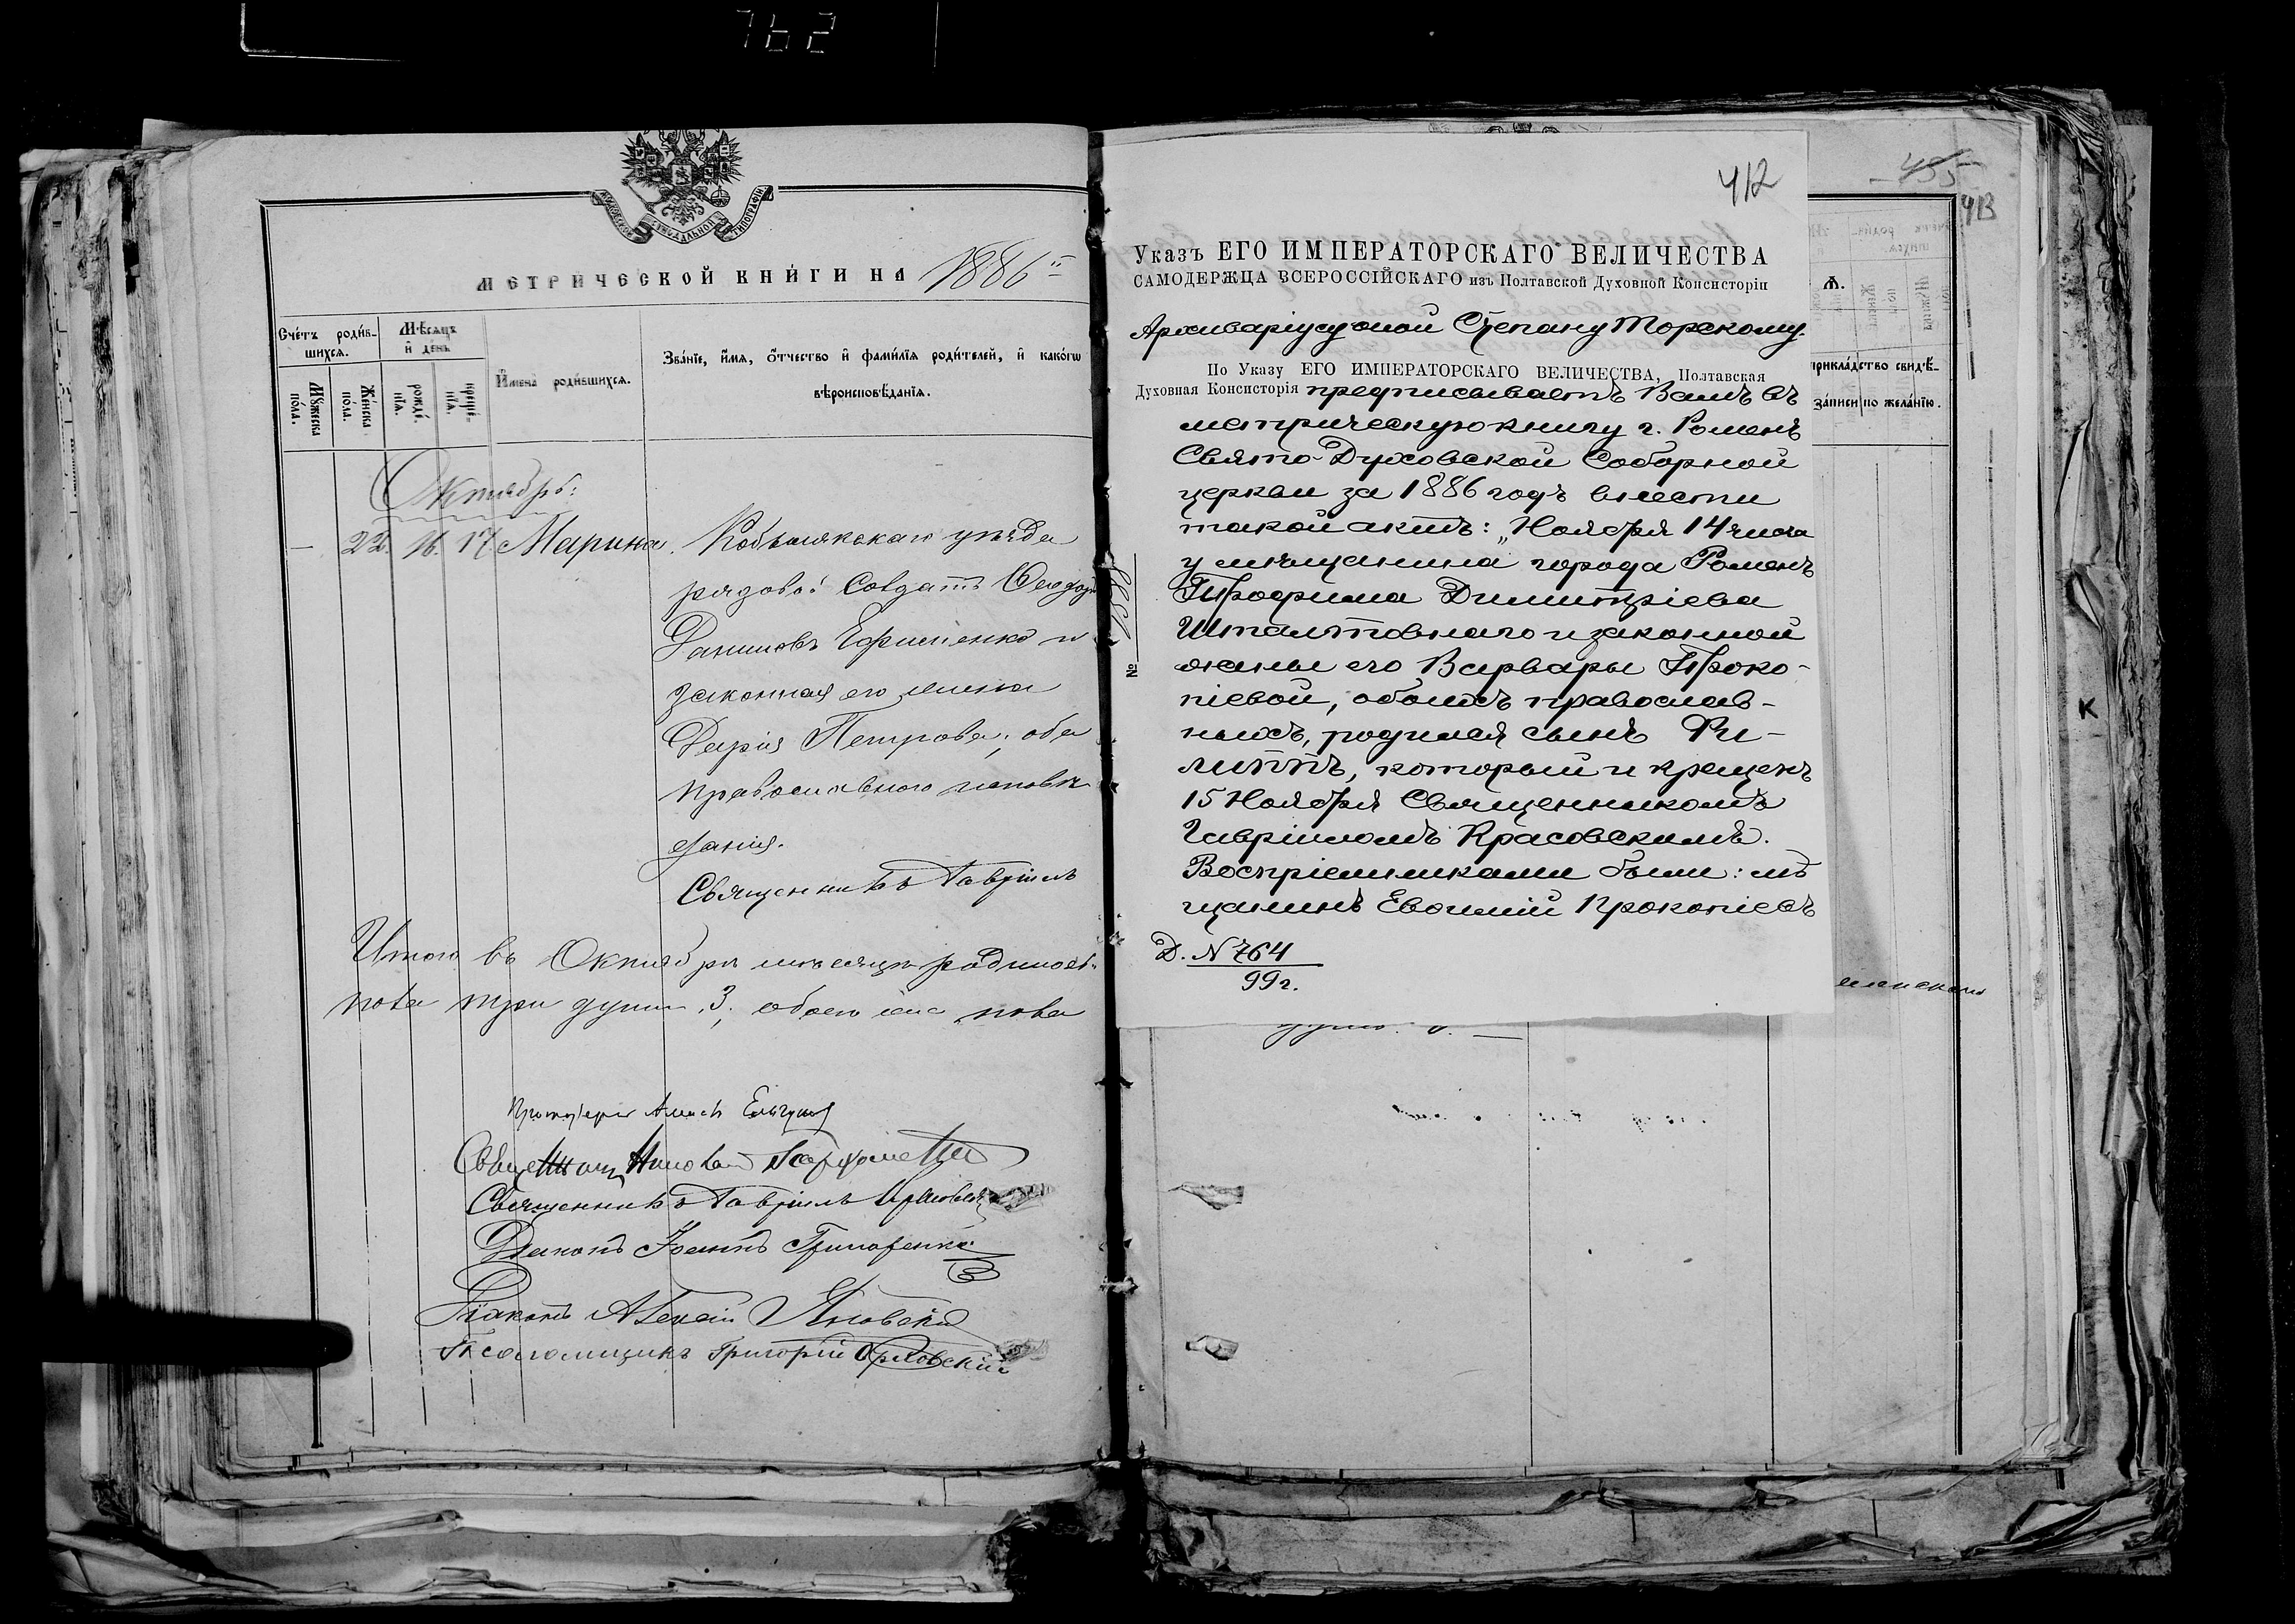 762
МОСКОВСКОЙ СѴНОДАЛЬНОЙ ТИПОГРАФІИ
МЕТРИЧЕСКОЙ КНИГИ НА 1886й
Счетъ родив-
шихся.
Мѣсяцъ
и день
Мужеска пола.
Женска пола.
рожде-нія.
креще-нія.
Имена родившихся.
Званіе, имя, отчество и фамилія родителей, и какогѡ
вѣроисповѣданія.
Октябрь:
22. 16. 17. Марина. Кобелякскаго уѣзда
рядовой солдатъ Ѳеодоръ
Даниловъ Ефименко и
законная его жена
Дарія Петрова, оба
православного исповѣ-
данія.
Священникъ Гавріилъ
Итого въ Октябрѣ мѣсяцѣ родилось
пола три души, 3; обоего пола
Протоіерей
Священникъ
Священникъ Гавріилъ Красовскій
Діаконъ Іоаннъ Григоренко
Діаконъ Алексій Яновскій
Псаломщикъ Григорій Орловскій
455
412
413
Указъ ЕГО ИМПЕРАТОРСКАГО ВЕЛИЧЕСТВА
САМОДЕРЖЦА ВСЕРОССІЙСКАГО изъ Полтавской Духовной Консисторіи
Архиваріусу оной Степану Торскому.
По Указу ЕГО ИМПЕРАТОРСКАГО ВЕЛИЧЕСТВА, Полтавская
Духовная Консисторія предписываетъ Вамъ въ
метрическую книгу г. Роменъ
Свято-Духовской Соборной
церкви за 1886 годъ внести
такой актъ: „Ноября 14 числа
у мѣщанина города Роменъ
Трофима Димитріева
Шталтовнаго и законной
жены его Варвары Проко-
піевой, обоихъ православ-
ныхъ, родился сынъ Фи-
липпъ, который и крещенъ
15 Ноября Священникомъ
Гавріиломъ Красовскимъ.
Воспріемниками были: мѣ
щанинъ Евфимій Прокопіевъ
Д. N 764
99 г.
№
прикла
дство свидѣ-
записи
по желанію.
К